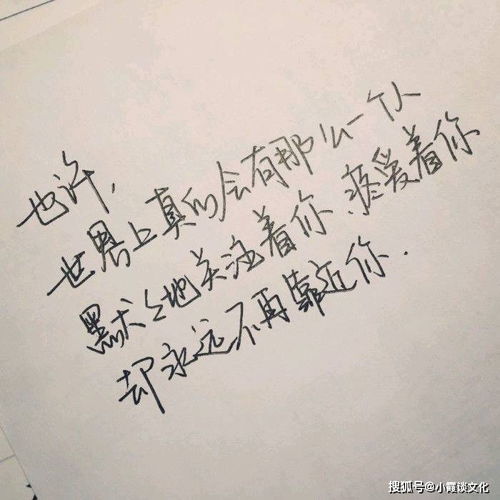 也许，
世界上真的会有那么一个人
默々地关注着你、疼爱着你
却永远不再靠近你．
搜狐号@小霞谈文化